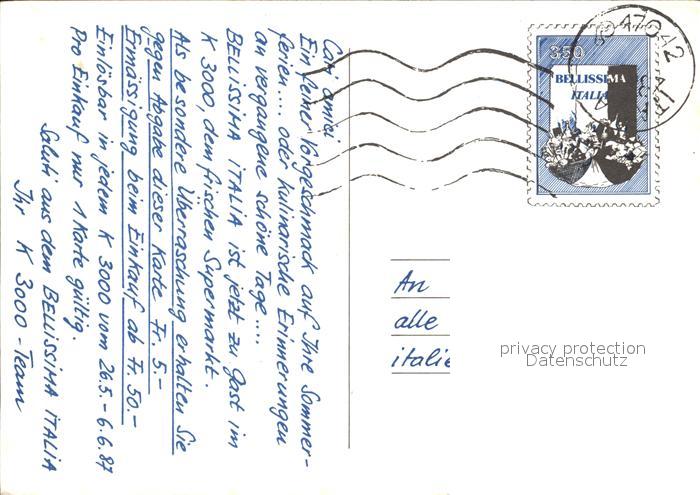 Cari amici,
Ein feiner Vorgeschmack auf Ihre Sommer-
ferien.... oder kulinarische Erinnerungen
an vergangene schöne Tage....
BELLISSIMA ITALIA ist jetzt zu Gast im
K 3000, dem frischen Supermarkt.
Als besondere Überraschung erhalten Sie
gegen Abgabe dieser Karte Fr. 5.-
Ermässigung beim Einkauf ab Fr. 50.-
Einlösbar in jedem K 3000 vom 26.5.-6.6.87
Pro Einkauf nur 1 Karte gültig.
Saluti aus dem BELLISSIMA ITALIA
Ihr K 3000-Team
350
BELLISSIMA
ITALIA
47042
An
alle
italie
privacy protection
Datenschutz